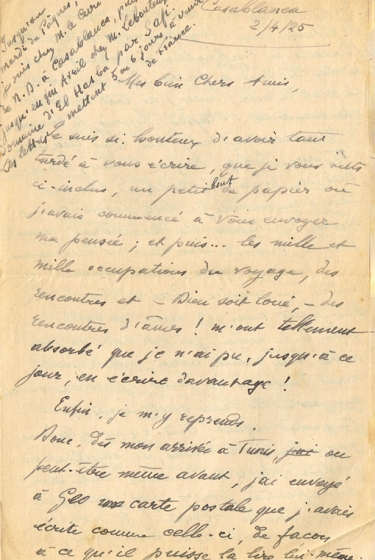 Casablanca
2/4/25
Jusqu'au
mardi de Pâques,
je suis chez M. le Curé
de N. D. à Casablanca, puis
jusqu'en fin Avril chez M. Lebouteux
Domaine d'El Hasba par Safi.
Les lettres mettent 5 ou 6 jours à venir
de France.
Mes bien Chers Amis,
Je suis si honteux d'avoir tant
tardé à vous écrire, que je vous mets
ci-inclus, un petit bout de papier où
j'avais commencé à vous envoyer
ma pensée ; et puis... les mille et
mille occupations du voyage, des
rencontres et – Dieu soit loué, – des
rencontres d'âmes ! m'ont tellement
absorbé que je n'ai pu, jusqu'à ce
jour, en écrire davantage !
Enfin, je m'y reprends.
Donc, dès mon arrivée à Tunis, ou
peut-être même avant, j'ai envoyé
à Géo une carte postale que j'avais
écrite comme celle-ci, de façon
à ce qu'il puisse la lire lui-même.